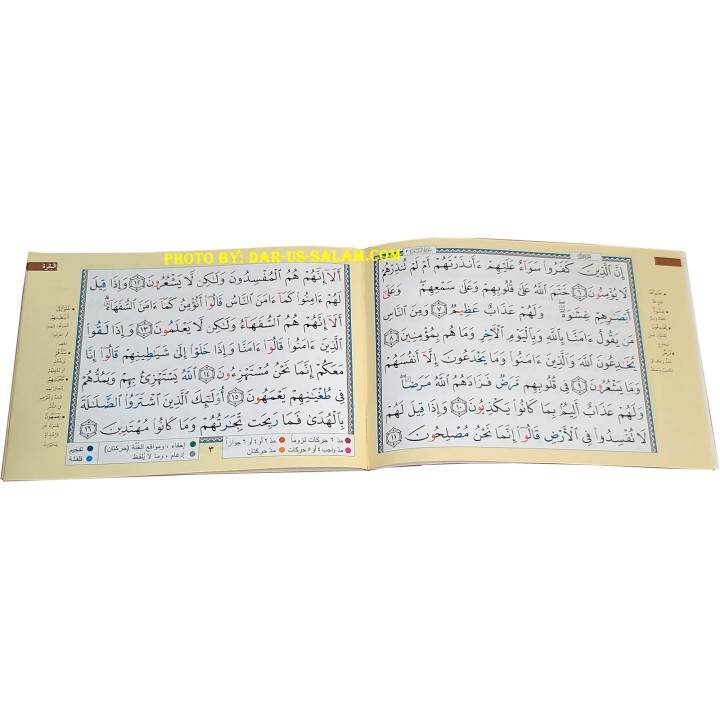 PHOTO BY: DAR-US-SALAM.COM
إِنَّ ٱلَّذِينَ كَفَرُوا۟ سَوَآءٌ عَلَيْهِمْ ءَأَنذَرْتَهُمْ أَمْ لَمْ تُنذِرْهُمْ
لَا يُؤْمِنُونَ ٦ خَتَمَ ٱللَّهُ عَلَىٰ قُلُوبِهِمْ وَعَلَىٰ سَمْعِهِمْ ۖ وَعَلَىٰٓ
أَبْصَـٰرِهِمْ غِشَـٰوَةٌ ۖ وَلَهُمْ عَذَابٌ عَظِيمٌ ٧ وَمِنَ ٱلنَّاسِ
مَن يَقُولُ ءَامَنَّا بِٱللَّهِ وَبِٱلْيَوْمِ ٱلْـَٔاخِرِ وَمَا هُم بِمُؤْمِنِينَ ٨
يُخَـٰدِعُونَ ٱللَّهَ وَٱلَّذِينَ ءَامَنُوا۟ وَمَا يَخْدَعُونَ إِلَّآ أَنفُسَهُمْ
وَمَا يَشْعُرُونَ ٩ فِى قُلُوبِهِم مَّرَضٌ فَزَادَهُمُ ٱللَّهُ مَرَضًا ۖ
وَلَهُمْ عَذَابٌ أَلِيمٌۢ بِمَا كَانُوا۟ يَكْذِبُونَ ١٠ وَإِذَا قِيلَ لَهُمْ
لَا تُفْسِدُوا۟ فِى ٱلْأَرْضِ قَالُوٓا۟ إِنَّمَا نَحْنُ مُصْلِحُونَ ١١
البقرة
أَلَآ إِنَّهُمْ هُمُ ٱلْمُفْسِدُونَ وَلَـٰكِن لَّا يَشْعُرُونَ ١٢ وَإِذَا قِيلَ
لَهُمْ ءَامِنُوا۟ كَمَآ ءَامَنَ ٱلنَّاسُ قَالُوٓا۟ أَنُؤْمِنُ كَمَآ ءَامَنَ ٱلسُّفَهَآءُ ۗ
أَلَآ إِنَّهُمْ هُمُ ٱلسُّفَهَآءُ وَلَـٰكِن لَّا يَعْلَمُونَ ١٣ وَإِذَا لَقُوا۟
ٱلَّذِينَ ءَامَنُوا۟ قَالُوٓا۟ ءَامَنَّا وَإِذَا خَلَوْا۟ إِلَىٰ شَيَـٰطِينِهِمْ قَالُوٓا۟ إِنَّا
مَعَكُمْ إِنَّمَا نَحْنُ مُسْتَهْزِءُونَ ١٤ ٱللَّهُ يَسْتَهْزِئُ بِهِمْ وَيَمُدُّهُمْ
فِى طُغْيَـٰنِهِمْ يَعْمَهُونَ ١٥ أُو۟لَـٰٓئِكَ ٱلَّذِينَ ٱشْتَرَوُا۟ ٱلضَّلَـٰلَةَ
بِٱلْهُدَىٰ فَمَا رَبِحَت تِّجَـٰرَتُهُمْ وَمَا كَانُوا۟ مُهْتَدِينَ ١٦
مدّ ٦ حركات لزوماً مدّ ٢ أو ٤ أو ٦ جوازاً
مدّ واجب ٤ أو ٥ حركات مدّ حركتان
٣
إخفاء، ومواقع الغُنَّة (حركتان) تفخيم
إدغام، وما لا يُلفَظ قلقلة